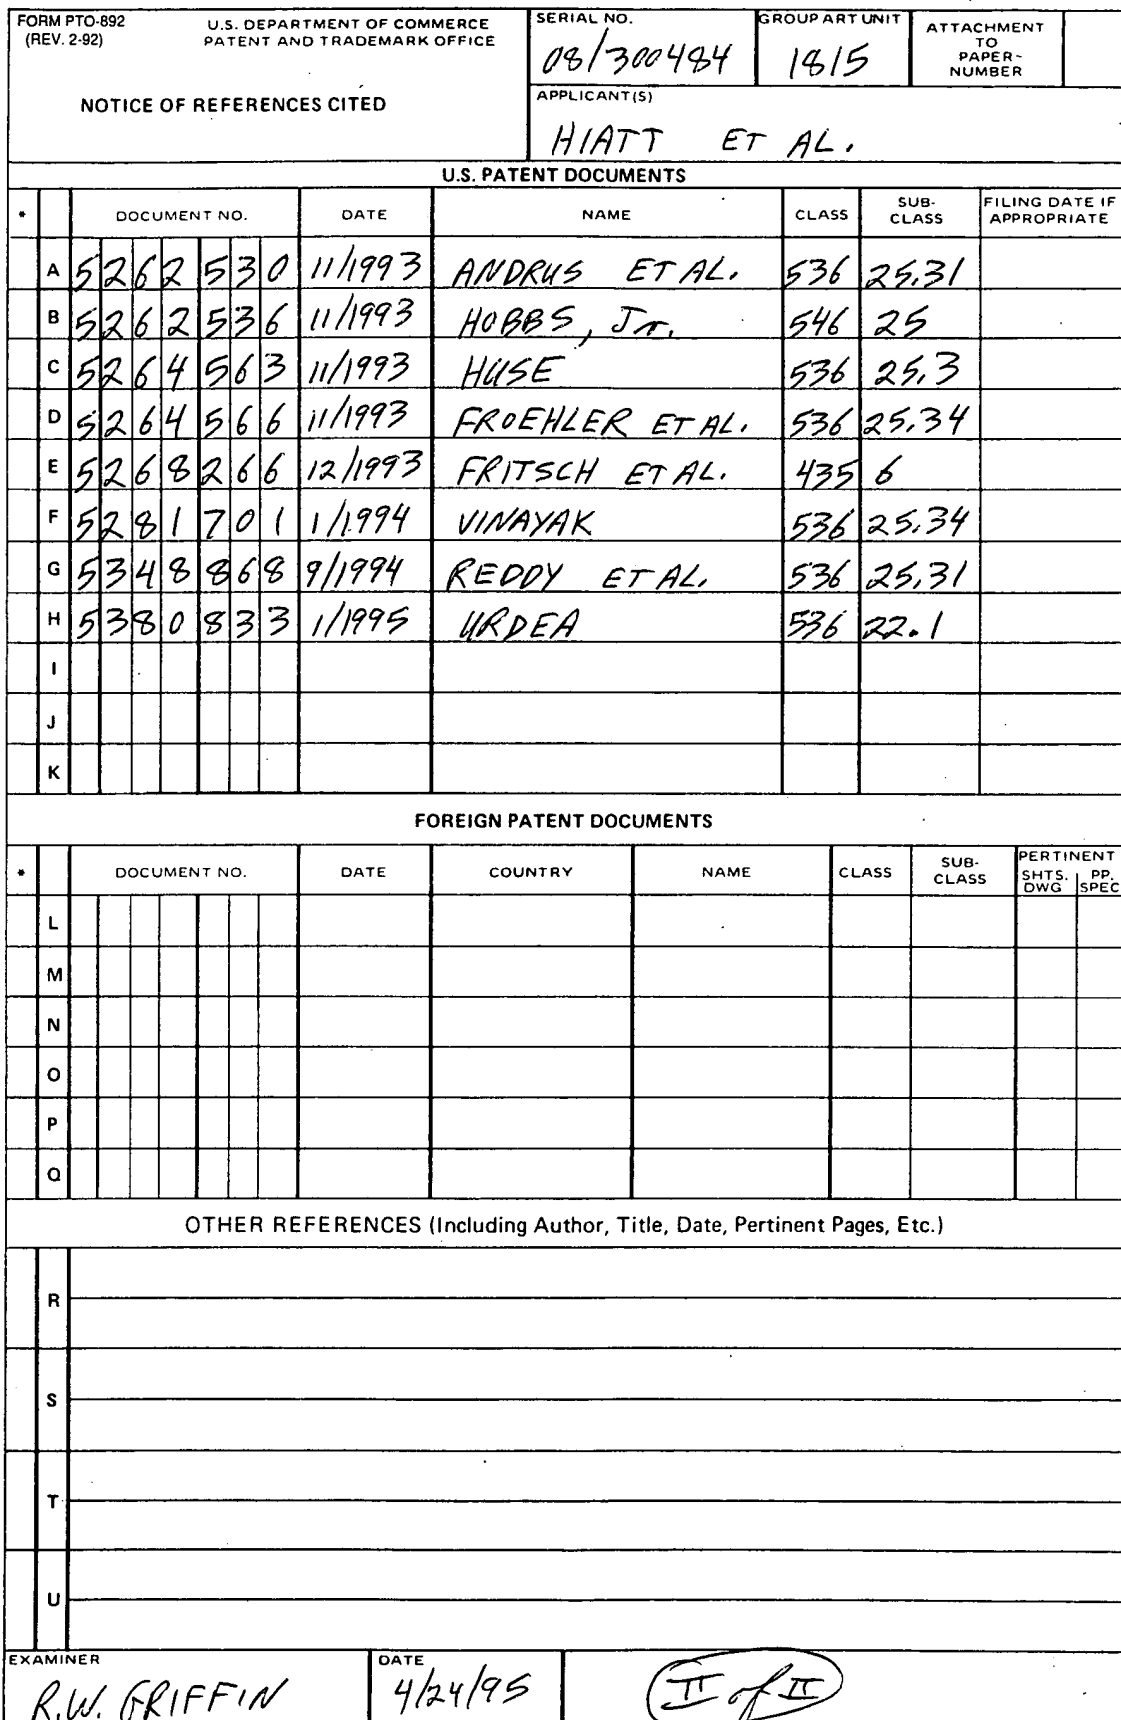 FORM PTO-892
(REV. 2-92)
U.S. DEPARTMENT OF COMMERCE
PATENT AND TRADEMARK OFFICE
NOTICE OF REFERENCES CITED
SERIAL NO.
08/300484
GROUP ART UNIT
1815
ATTACHMENT
TO
PAPER
NUMBER
APPLICANT(S)
HIATT ET AL.
U.S. PATENT DOCUMENTS
* DOCUMENT NO. DATE NAME CLASS SUB-CLASS FILING DATE IF APPROPRIATE
A 5262530 11/1993 ANDRUS ET AL. 536 25.31
B 5262536 11/1993 HOBBS, Jr. 546 25
C 5264563 11/1993 HUSE 536 25.3
D 5264566 11/1993 FROEHLER ET AL. 536 25.34
E 5268266 12/1993 FRITSCH ET AL. 435 6
F 5281701 1/1994 VINAYAK 536 25.34
G 5348868 9/1994 REDDY ET AL. 536 25.31
H 5380833 1/1995 URDEA 536 22.1
I
J
K
FOREIGN PATENT DOCUMENTS
* DOCUMENT NO. DATE COUNTRY NAME CLASS SUB-CLASS PERTINENT SHTS. DWG PP. SPEC
L
M
N
O
P
Q
OTHER REFERENCES (Including Author, Title, Date, Pertinent Pages, Etc.)
R
S
T
U
EXAMINER
R.W. GRIFFIN
DATE
4/24/95
II of II